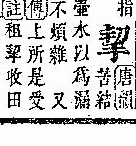 指
挈 唐韻
苦結
壷水以為漏
不煩雜 又
傳上所是受
註租挈收田